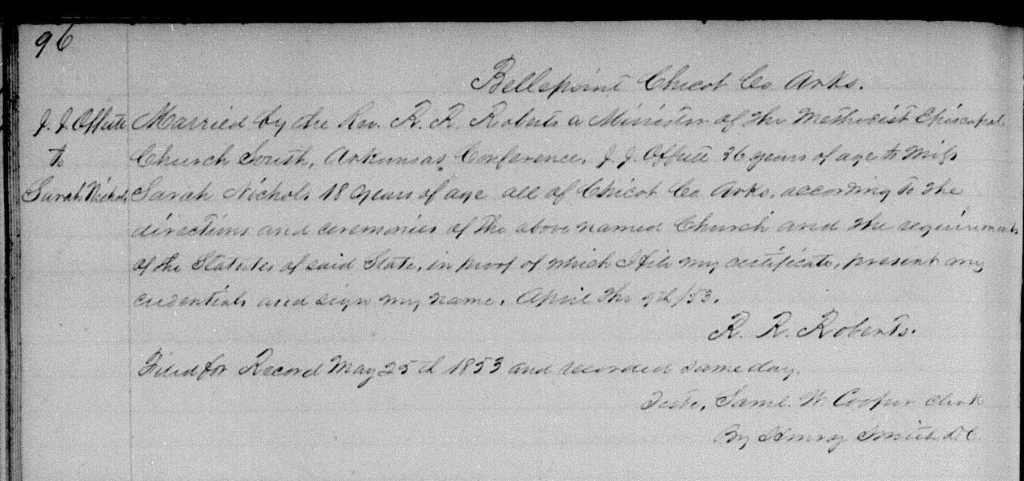 96
Bellepoint Chicot Co Arks.
J. J. Offutt Married by the Rev. R. R. Roberts a Minister of the Methodist Episcopal
to Church South, Arkansas Conference, J. J. Offutt 36 years of age to Miss
Sarah Nichols Sarah Nichols 18 years of age all of Chicot Co Arks. according to the
directions and ceremonies of the above named Church and the requirements
of the Statutes of said State, in proof of which I file my certificate, present my
credentials and sign my name. April the 9th /53.
R. R. Roberts.
Filed for Record May 25th 1853 and recorded same day.
Teste, Saml. W. Cooper clerk
By Henry Smith D.C.